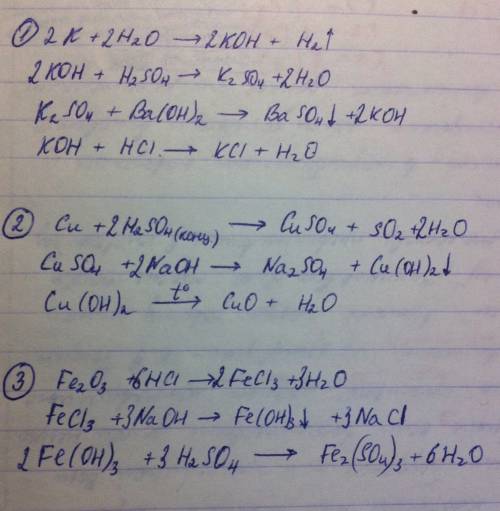 ① 2K + 2H₂O → 2KOH + H₂↑
2KOH + H₂SO₄ → K₂SO₄ + 2H₂O
K₂SO₄ + Ba(OH)₂ → BaSO₄↓ + 2KOH
KOH + HCl → KCl + H₂O
② Cu + 2H₂SO₄(конц) → CuSO₄ + SO₂ + 2H₂O
CuSO₄ + 2NaOH → Na₂SO₄ + Cu(OH)₂↓
Cu(OH)₂ t°→ CuO + H₂O
③ Fe₂O₃ + 6HCl → 2FeCl₃ + 3H₂O
FeCl₃ + 3NaOH → Fe(OH)₃↓ + 3NaCl
2Fe(OH)₃ + 3H₂SO₄ → Fe₂(SO₄)₃ + 6H₂O